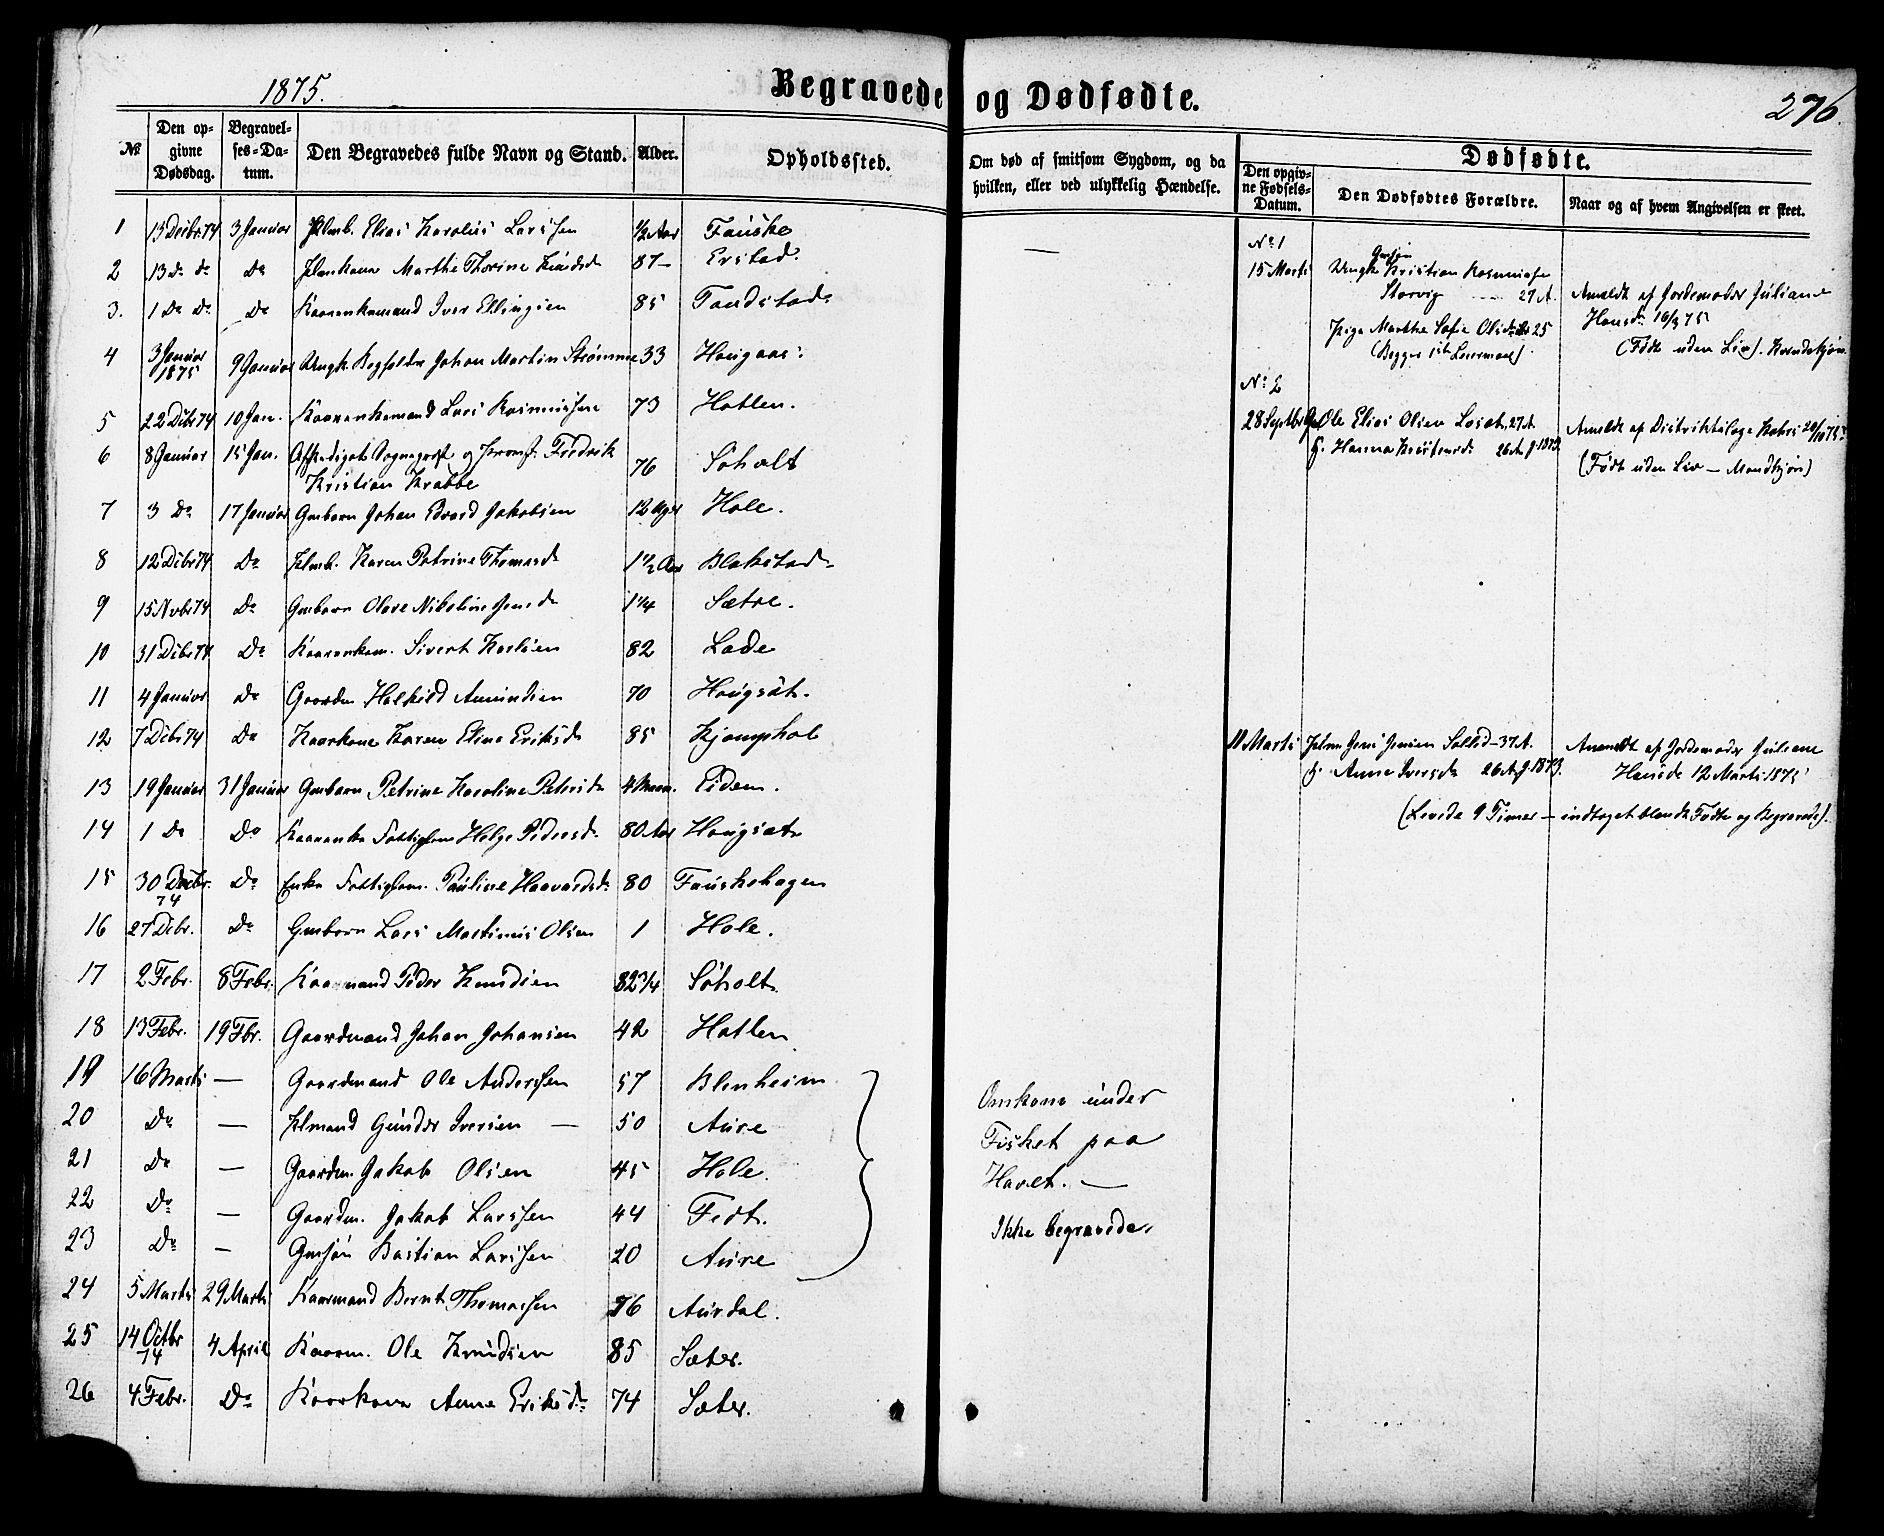 1875.
Begravede og Dødfødte.
276.
No.
Den opgivne Dødsdag.
Begravelses-Datum.
Den Begravedes fulde Navn og Stand.
Alder.
Opholdssted.
Om død af smitsom Sygdom, og da hvilken, eller ved ulykkelig Hændelse.
Dødfødte.
Den opgivne Fødsels-Datum.
Den Dødfødtes Forældre.
Naar og af hvem Angivelsen er skeet.
1 15 Decbr. 74 3 Januar Elias Karolus Larssen ½ Aar Fauske —
2 13 Do do Do Marthe Thorine Knudsd. 87 – Erstad.
3. 1 Do Do Do Kaarenkemand Iver Ellingsen 85 Tandstad
4 3 Januar 1875 9 Januar Ungk. Johan Martin Strømme 33 Haugaas:
5 22 Dcbr 74 10 Jan. Kaarenkemand Lars Rasmussen 73 Hatlen.
6 8 Januar 15 Jan. Afskediget Sogneprest og Provst Fredrik
Kristian Krabbe 76 Søholt
7 3 Do 17 Januar Gmbarn Johan Edvard Jakobsen 12 Uger Hole.
8 12 Dcbr 74 Do Hlmb. Karen Petrine Thomasd. 1½ Aar Blakstad
9 15 Nvbr 74 Do Gmbarn Olave Nikoline Jensd. 1¼ Sætre.
10 31 Dcbr 74 Do Kaarenkem. Sivert Karlsen 82 Lade
11 4 Januar Do Gaardm. Halkild Amundsen 70 Haugsæt.
12 7 Dcbr 74 Do Kaarkone Karen Eline Eriksd. 85 Kjamphol
13 19 Januar 31 Januar Gmbarn Petrine Karoline Petersd. 4 Maan. Eidem.
14 1 Do Do Kaarenke Fattiglem Helge Pedersd. 80 Aar Haugsæt
15 30 Decbr. 74 Do Enke Fattiglem. Pauline Haavardsd. 80 Fauskehagen
16 27 Dcbr. Do Gmbarn Lars Martinus Olsen 1 Hole.
17 2 Febr. 8 Febr. Kaarmand Peder Knudsen 82¾ Søholt
18 13 Febr. 19 Fbr. Gaardmand Johan Johansen 42 Hatlen
19 16 Marts — Gaardmand Ole Anderssen 57 Blenheim
20 Do — Hlmand Gunder Iversen — 50 Aure
21 Do — Gaardm. Jakob Olsen 45 Hole.
22 Do — Gaardm. Jakob Larssen 44 Fedt.
23 Do — Gmsøn Bastian Larssen 20 Aure
Omkom under
Fisket paa
Havet. —
Ikke begravede.
24 5 Marts 29 Marts Kaarmand Bernt Thomassen 76 Aurdal.
25 14 Octbr 74 4 April Kaarm. Ole Knudsen 85 Sæter.
26 4 Febr. Do Kaarkone Anne Eriksd. 74 Sæter.
No 1
15 Marts Gmsøn
Ungk. Kristian Rasmussen
Storvig — 27 A.
Pige Marthe Sofie Olsd. 25
(Begges 1ste Leiermaal).
Anmeldt af Jordemoder Juliane
Hansd. 16/3 75
(Født uden Liv). Kvindekjøn
No 2
28 Septbr Ole Elias Olsen Løset, 27 A
H. Hanna Knutsensd. 26 A. g. 1873.
Anmeldt af Distriktslæge 20/10 75
(Født uden Liv – Mandkjøn)
11 Marts Hlm Jens Jensen Solli 37 A.
H. Anne Iversd. 26 A g. 1873.
Anmeldt af Jordemoder Juliane
Hansd. 12 Marts 1875
(Levede 9 Timer – indtaget blandt Fødte og Begravede).